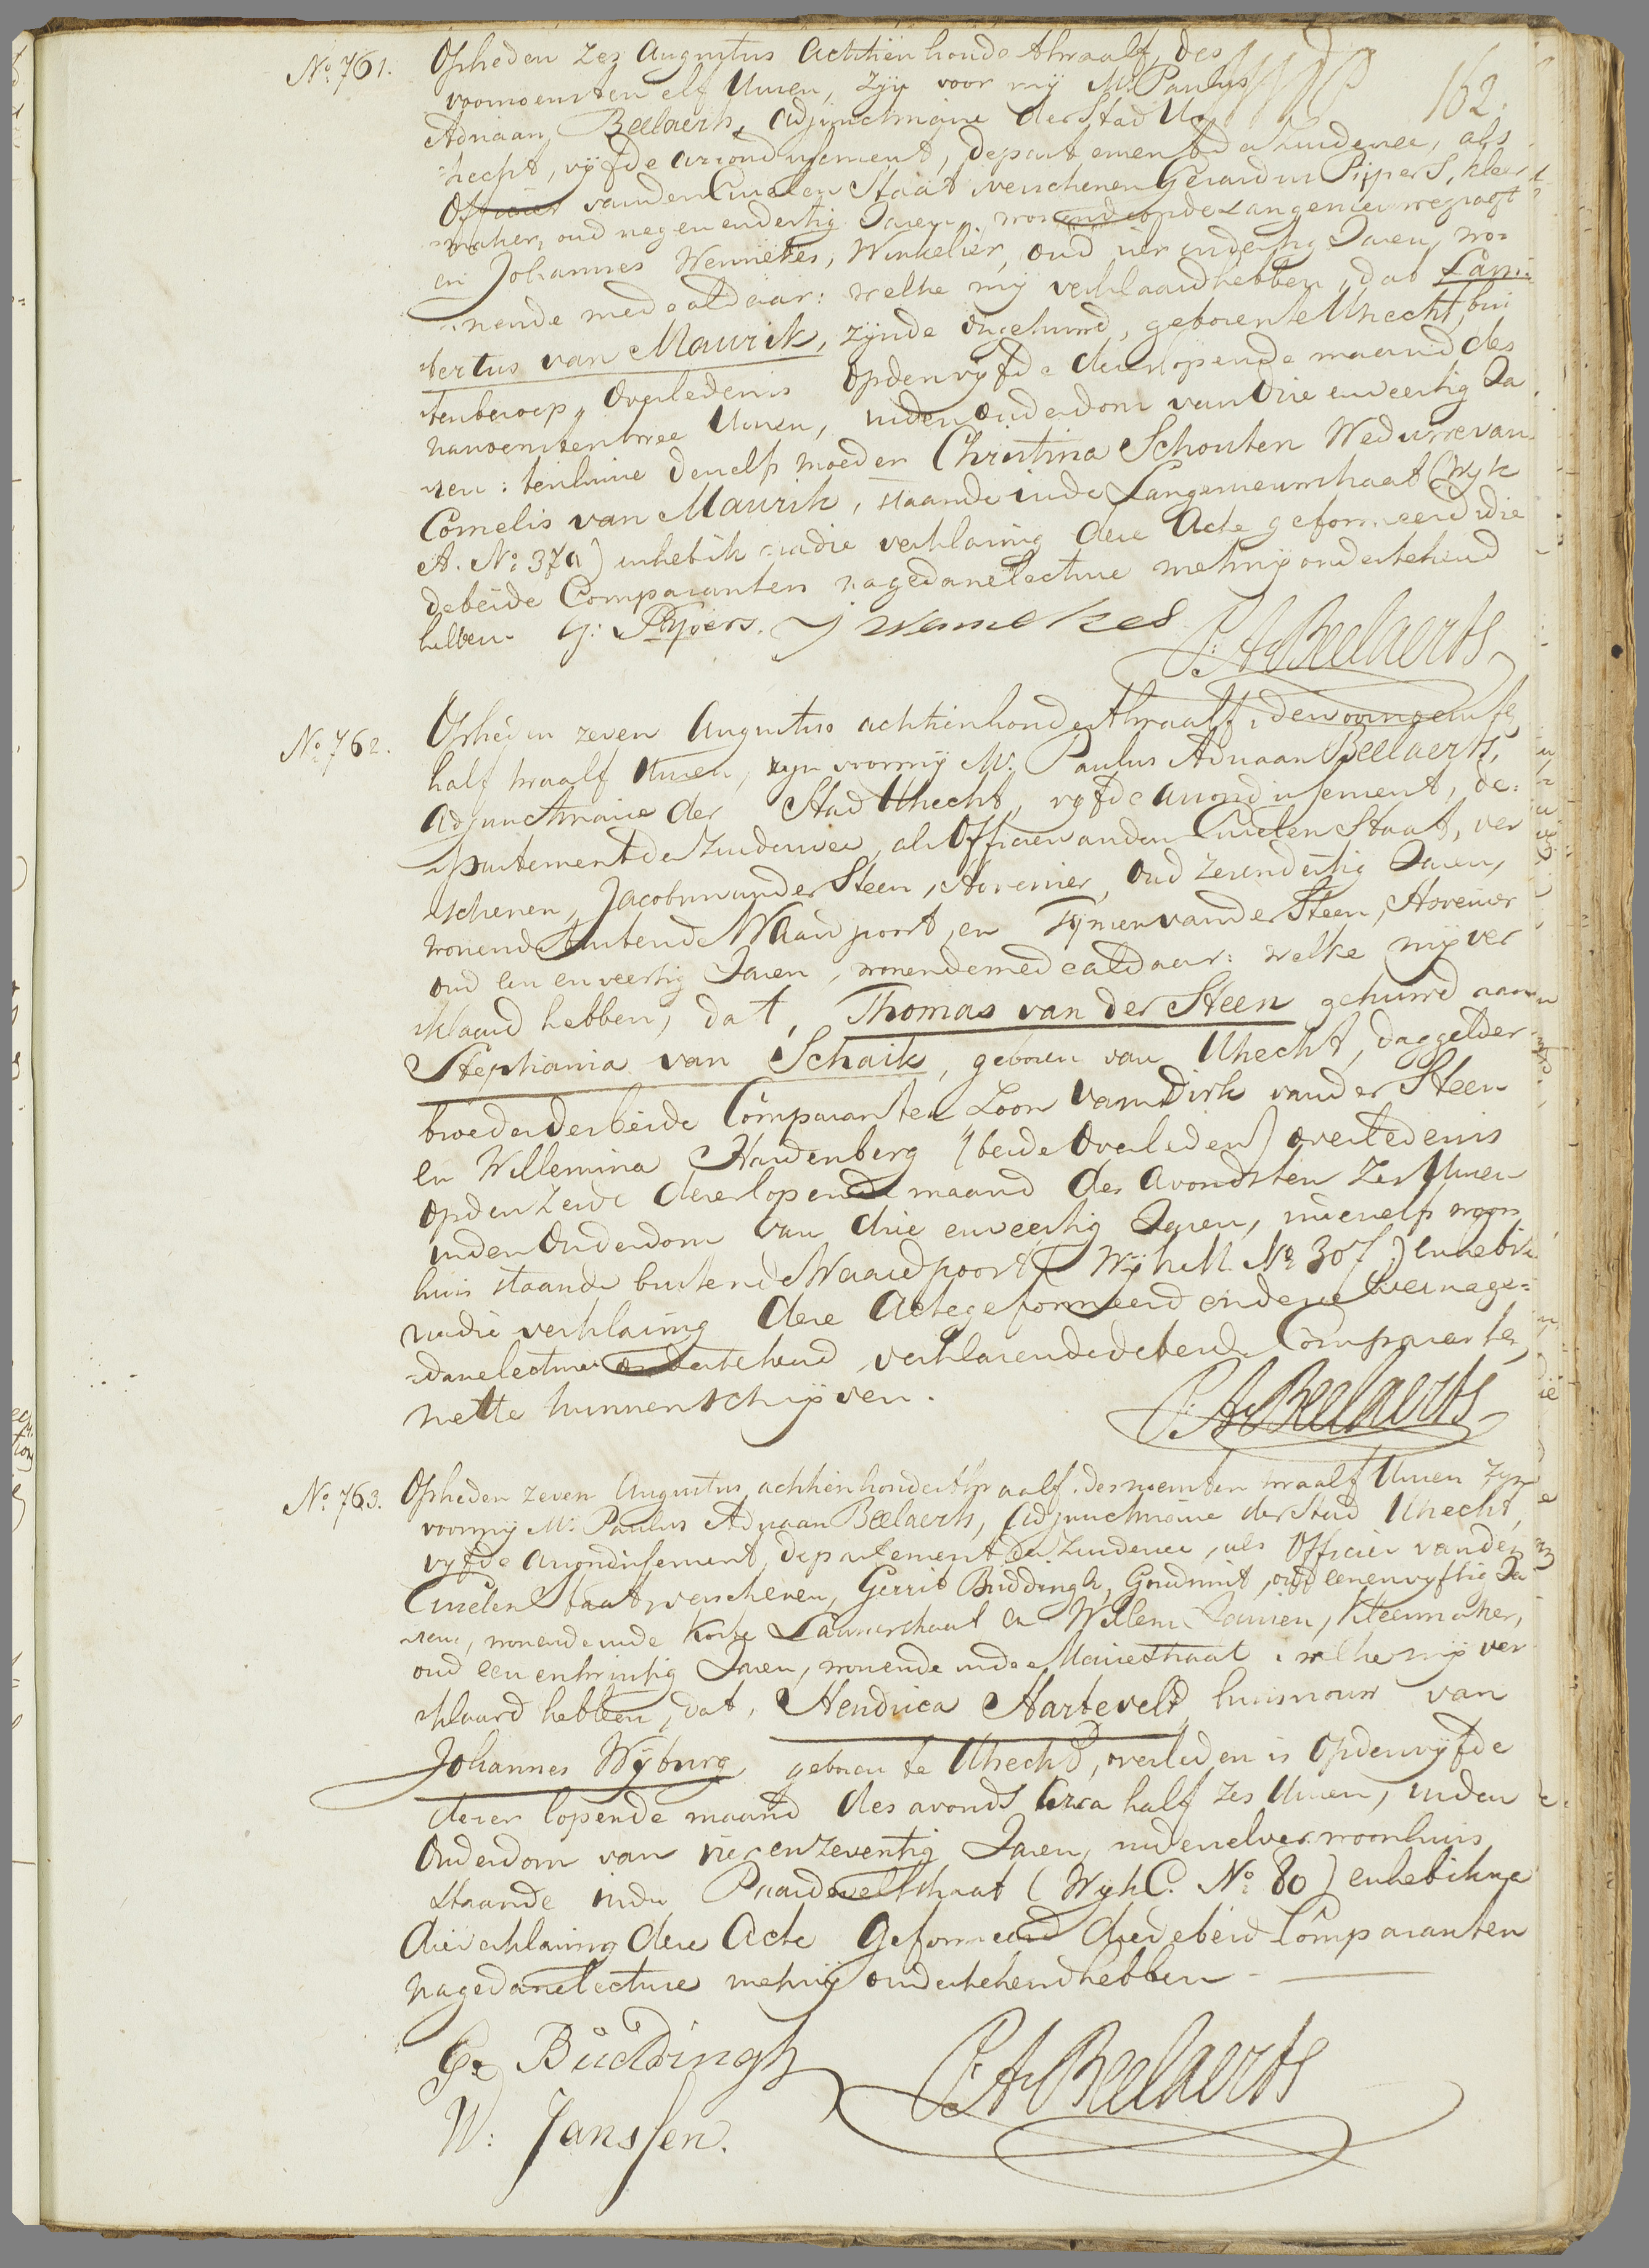 162.
No. 761. Opheden zes Augustus achttien honderd twaalf, des
voormiddags ten elf Uuren, zijn voor mij Mr. Paulus
Adriaan Beelaerts, adjunctmaire der Stad Ut
trecht, vijfde arrondissement, departement der Zuiderzee, als
Officier van den Civielen Staat verschenen Gerardus Pijpers, kleer
maker, oud negenendertig Jaren, wonende op de Langenieuwegraft
en Johannes Wennekes, Winkelier, oud vier endertig Jaren, wo-
nende mede aldaar: welke mij verklaard hebben, dat Lam-
bertus van Maurik, zijnde ongehuwd, geboren te Utrecht, bui
ten beroep, overleden is op den vijfde dezer lopende maand des
namiddags ten twee Uuren, in den Ouderdom van drie en veertig Ja
ren: ten huize deszelfs moeder Christina Schouten Weduwe van
Cornelis van Maurik, staande in de Langenieuwstraat (Wijk
A. No. 37a) en heb ik na die verklaring deze Acte geformeerd die
de beide Comparanten na gedane lecture met mij ondertekend
hebben. G: Pijpers. J Wennekes P: A: Beelaerts
No. 762. Opheden zeven Augustus achttienhonderd twaalf, des voormiddags te
half twaalf Uuren, zijn voor mij Mr. Paulus Adriaan Beelaerts,
adjunctmaire der Stad Utrecht, vijfde arrondissement, de-
partement der Zuiderzee, als Officier van den Civielen Staat, ver
schenen, Jacobus van der Steen, Hovenier, oud zesendertig Jaren,
wonende buiten de Waardpoort, en Tijmen van der Steen, Hovenier
oud een en veertig Jaren, wonende mede aldaar: welke mij ver
klaard hebben, dat, Thomas van der Steen gehuwd aan
Stephania van Schaik, geboren van Utrecht, daggelder
broeder der beide Comparanten Zoon van Dirk van der Steen
en Willemina Hardenberg (beide Overleden) overleden is
op den zesde dezer lopende maand des avonds ten zes Uuren
in den Ouderdom van drie en veertig Jaren, in deszelfs woon
huis staande buiten de Waardpoort (Wijk M. No. 307.) en heb ik
na die verklaring deze Acte geformeerd en dezelve na ge-
dane lecture ondertekend, verklarende de beide Comparanten
niet te kunnen schrijven. P: A: Beelaerts
No. 763. Opheden zeven Augustus achttienhonderd twaalf, des middags ten twaalf Uuren zijn
voor mij Mr. Paulus Adriaan Beelaerts, Adjunctmaire der Stad Utrecht,
vijfde arrondissement, departement der Zuiderzee, als Officier van den
Civielen Staat, verschenen, Gerrit Büddingh, Goudsmit, oud eenenvijftig Ja
ren, wonende in de Korte Lauwerstraat en Willem Janssen, Kleermaker,
oud een en twintig Jaren, wonende in de Mariestraat, welke mij ver
klaard hebben, dat, Hendrica Hartevelt, huisvrouw van
Johannes Wijburg, geboren te Utrecht, overleden is op den vijfde
dezer lopende maand des avonds circa half zes Uuren, in den
Ouderdom van vier en zeventig Jaren, in derzelver woonhuis
staande in de Paardeveltstraat (Wijk C. No. 80) en heb ik na
die verklaring deze Acte geformeerd die de beide Comparanten
na gedane lecture met mij ondertekend hebben
G: Büddingh P: A: Beelaerts
W: Janssen.